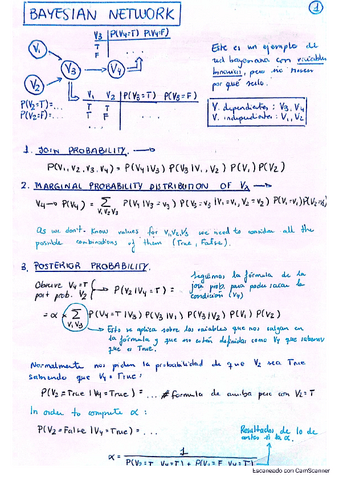 BAYESIAN NETWORK
1
V3 P(V4=T) P(V4=F)
T
F
V1
V2
V3
V4
P(V2=T)=...
P(V2=F)=...
V1 V2 P(V3=T) P(V3=F)
T T
T F
Este es un ejemplo de
red bayesiana con variables
binarias, pero no tienen
por qué serlo.
V. dependientes: V3, V4
V. independientes: V1, V2
1. JOIN PROBABILITY.
P(V1, V2, V3, V4) = P(V4|V3) P(V3|V1, V2) P(V1) P(V2)
2. MARGINAL PROBABILITY DISTRIBUTION OF V4
V4 → P(V4) = Σ V1V2V3
As we don't know values for V1, V2, V3 we need to consider all the
possible combinations of them (True, False).
3. POSTERIOR PROBABILITY.
Observe V4=T
post prob. V2
P(V2|V4=T) =
Seguimos la fórmula de la
join prob. para poder sacar la
condición (V4)
= α Σ V1V3 P(V4=T|V3) P(V3|V1) P(V3|V2) P(V1) P(V2)
Esto se aplica sobre las variables que nos salgan en
la fórmula y que no estén definidas como V4 que sabemos
que es True.
Normalmente nos piden la probabilidad de que V2 sea True
sabiendo que V4 = True:
P(V2=True|V4=True) = ... # fórmula de arriba pero con V2=T
In order to compute α:
P(V2=False|V4=True) = ...
Resultados de lo de
antes si la α.
α = 1
P(V2=T, V4=T) + P(V2=F, V4=T)
Escaneado con CamScanner